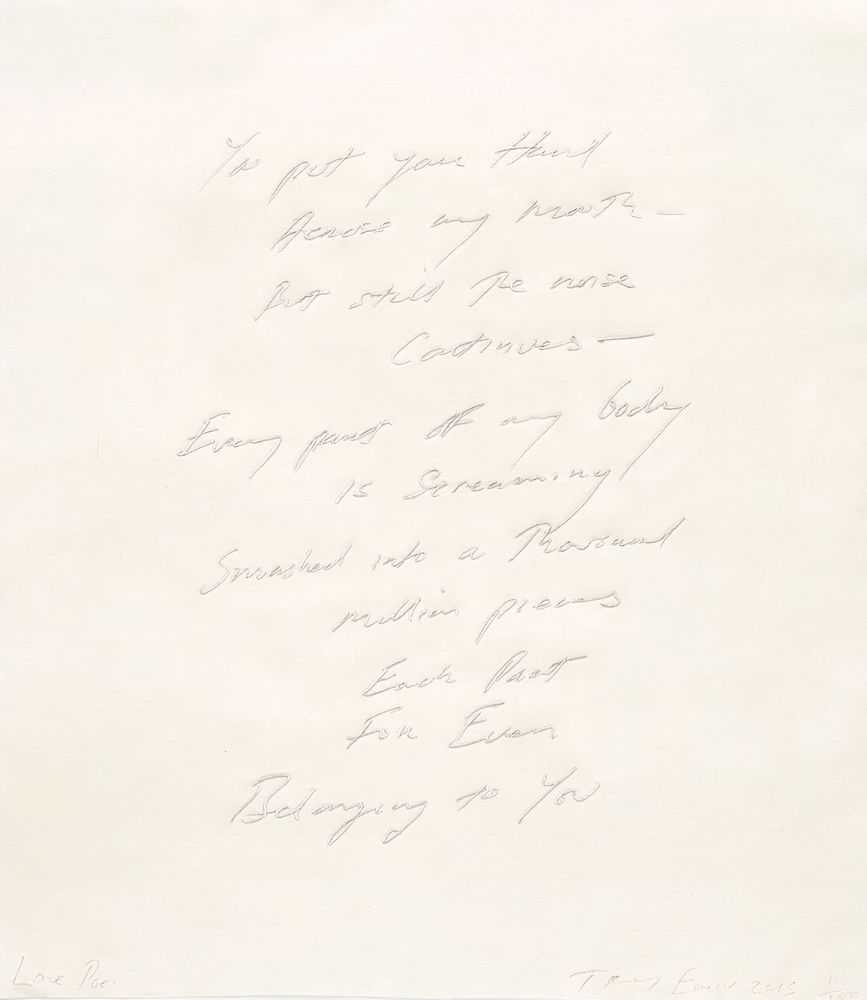 You put your Hand
Across my mouth —
But still The noise
Continues —
Every part OF my body
is Screaming
Smashed into a Thousand
million pieces
Each Part
For Ever
Belonging to You
Love Poem
Tracey Emin